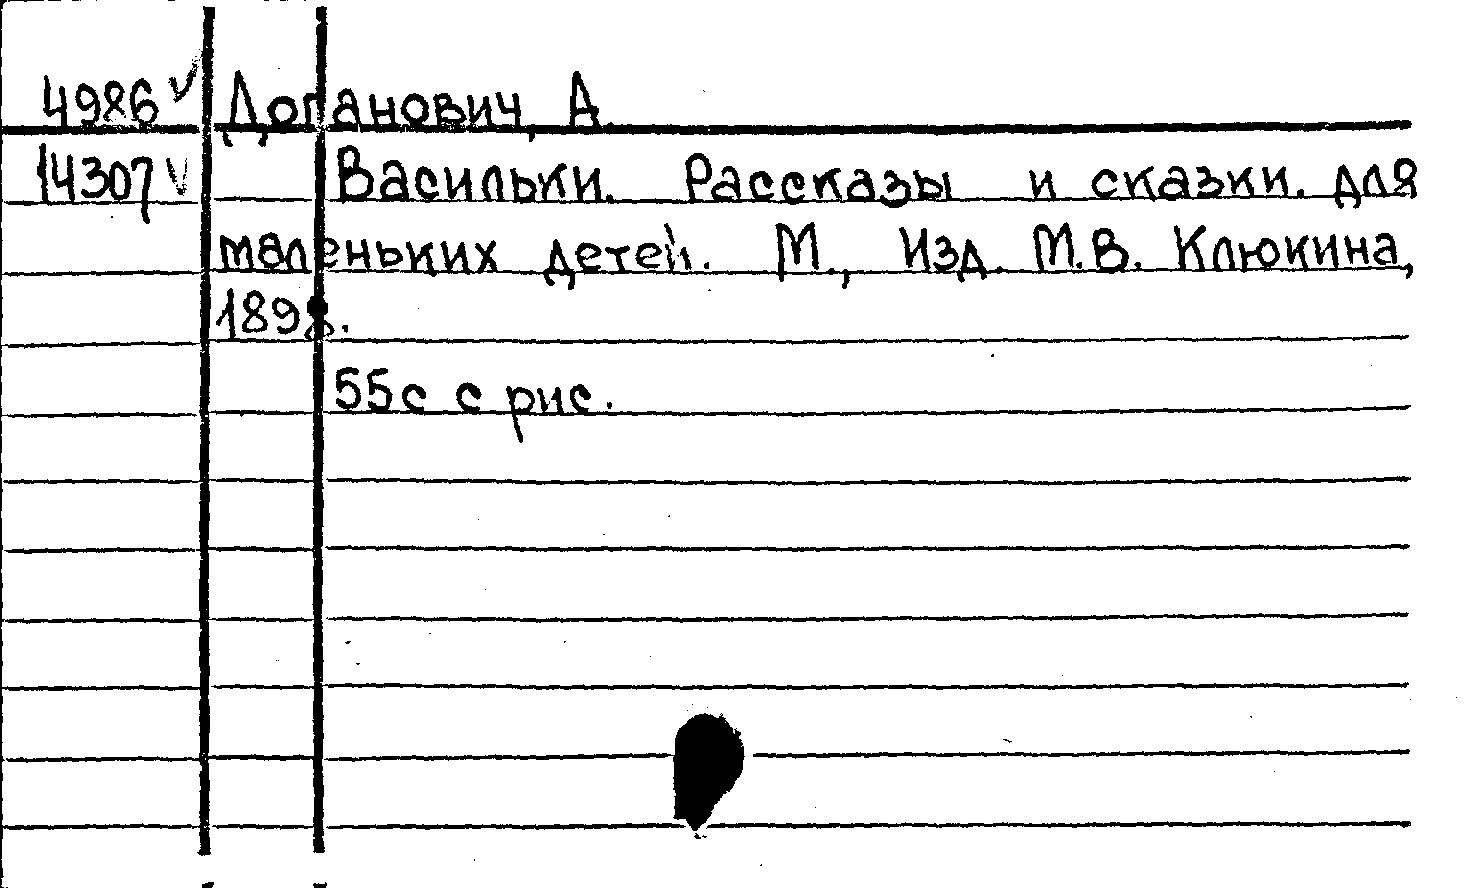 4986 ✓ Доганович, А.
14307 ✓ Васильки. Рассказы и сказки. для
маленьких детей. М., Изд. М.В. Клюкина,
1898.
55с с рис.